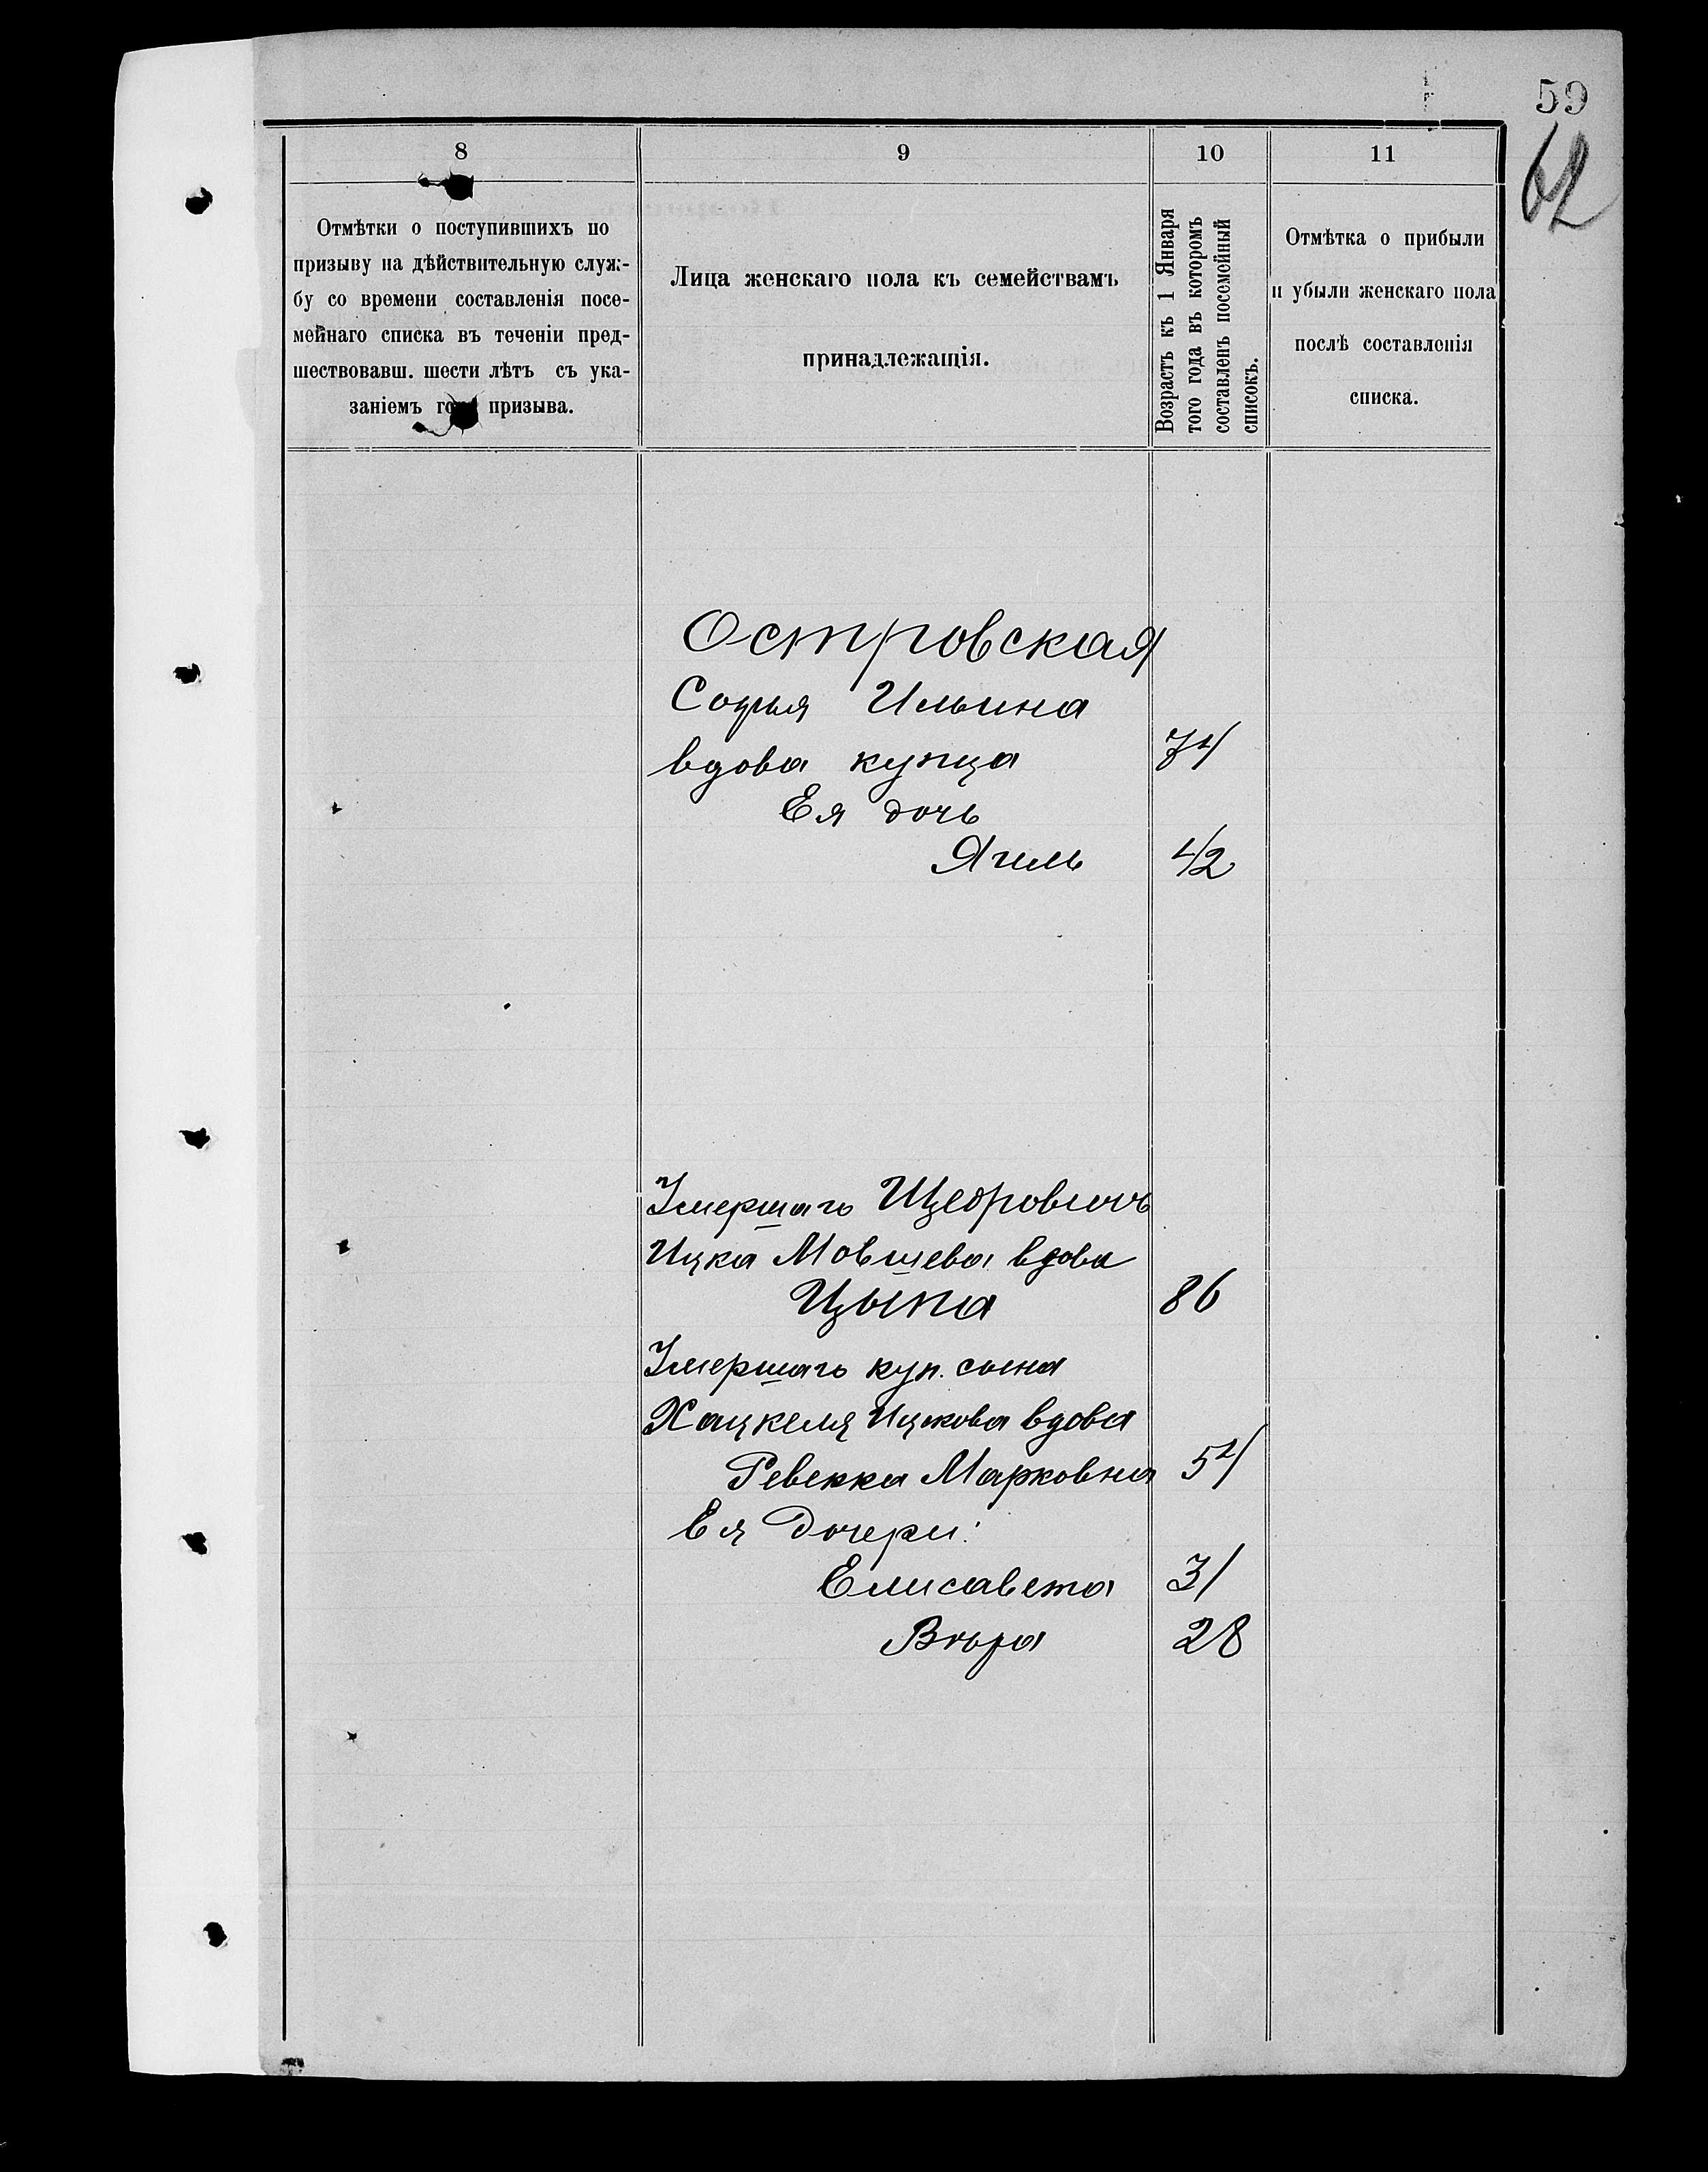 59
62
8
9
10
11
Отмѣтки о поступившихъ по
призыву на дѣйствительную служ-
бу со времени составленія посе-
мейнаго списка въ теченіи пред-
шествовавш. шести лѣтъ съ ука-
заніемъ го призыва.
Лица женскаго пола къ семействамъ
принадлежащія.
Возрастъ къ 1 Января
того года въ которомъ
составленъ посемейный
списокъ.
Отмѣтка о прибыли
и убыли женскаго пола
послѣ составленія
списка.
Островская
Софья Ильина
вдова купца 74
Ея дочь
42
Умершаго Щедровичъ
Ицка Мовшева вдова
Цыпа 86
Умершаго куп. сына
Хацкеля Ицкова вдова
Ревекка Марковна 54
Ея дочери:
Елисавета 31
Вѣра 28